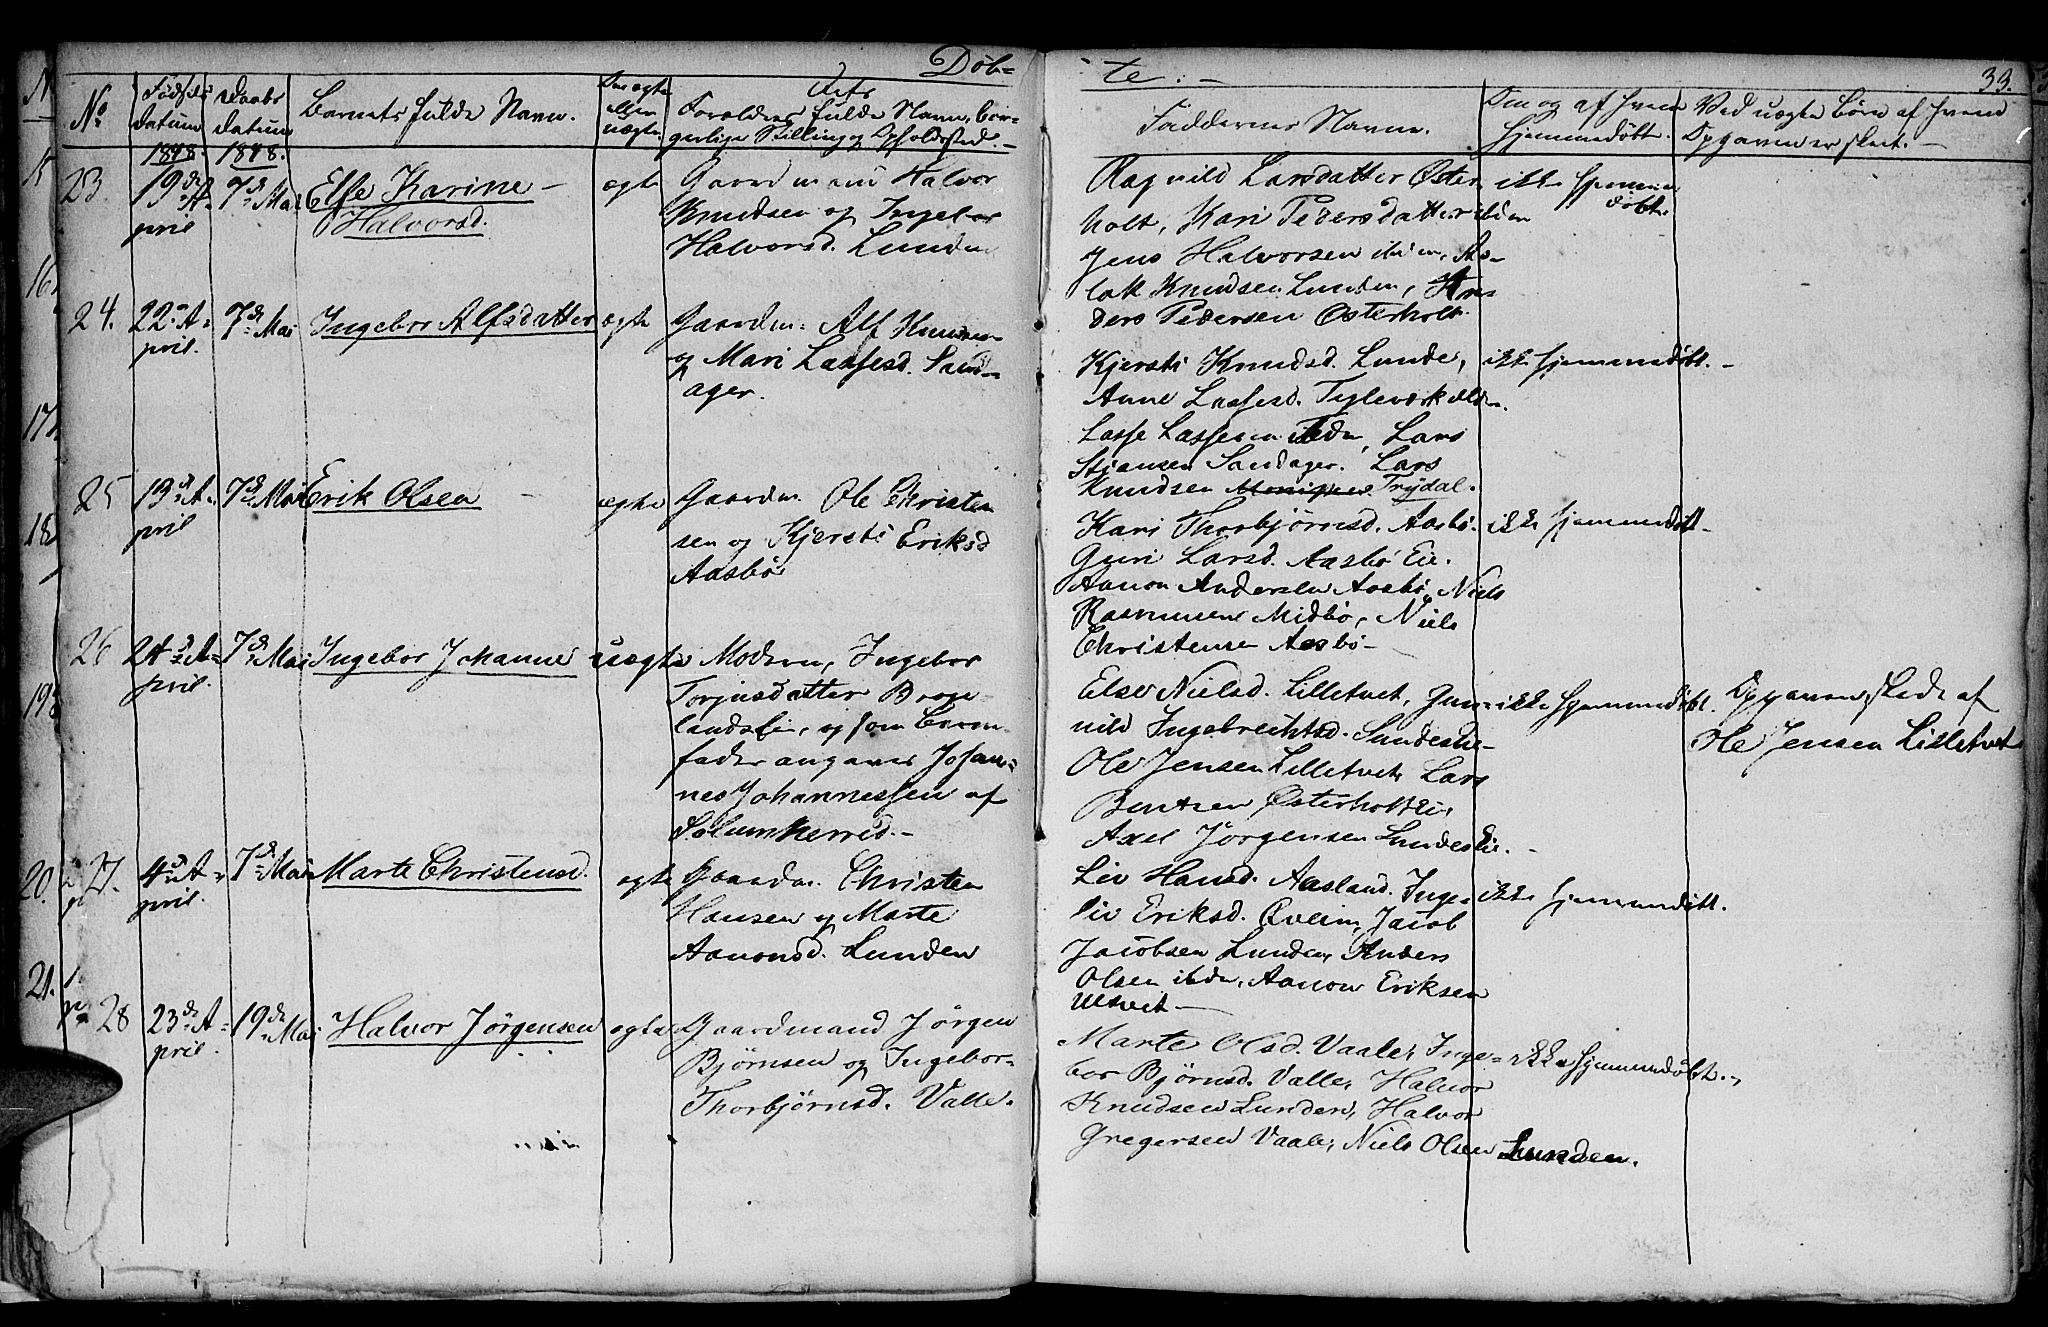 Døb=
te. -
33.
No
Fødsels datum
Daabs datum
Barnets fulde Navn.
Om ægte eller uægte.
Forældres fulde Navn, bor-
gerlige Stilling og Opholdssted. -
Faddernes Navne.
Om og af hvem
hjemmedøbt.
Ved uægte Børn af hvem
Opgaven er skeet. -
1848. 1848.
23. 19de A= pril 7de Mai Else Karine -
Halvorsd.
ægte
Gaardmand Halvor
Knudsen og Ingebor
Halvorsd. Lunden
Ragnild Larsdatter Øster
holt, Kari Pedersdatter ibidem
Jens Halvorsen ibidem, As-
lak Knudsen Lunden, An-
ders Pedersen Østerholt.
ikke hjemme
døbt.
24. 22de A= pril. 7de Mai Ingebor Alfsdatter ægte
Gaardm: Alf Knudsen
og Mari Lassesd. Sand-
ager.
Kjersti Knudsd. Lunde,
Anne Lassesd.
Lasse Lassesen Lars
Stiansen Sandager. Lars
Knudsen Trydal.
ikke hjemmedøbt. -
25 19de A= pril 7de Mai Erik Olsen ægte
Gaardm. Ole Christen
sen og Kjersti Eriksd
Aasbø
Kari Thorbjørnsd. Aasbø.
Guri Larsd. Aasbø Eie.
Aanon Andersen Aasbø, Niels
Rasmusen Midbø, Niels
Christensen Aasbø -
ikke hjemmedøbt -
26 24de A= pril. 7de Mai Ingebor Johanne uægte
Moderen, Ingebor
Torjusdatter Broge
landslie, og som Barn
fader angaves Johan=
nes Johannessen af
Solum Herred. -
Else Nielsd. Lilletvet, Gun=
nild Ingebrechtsd. Lundeslie -
Ole Jensen Lilletvet, Lars
Bentsen Østerholt Eie,
Axel Jørgensen Lundeslie. -
ikke hjemmedøbt.
Opgaven skede af
Ole Jensen Lilletvet
27. 4de A= pril. 7de Mai Marte Christensd. ægte
Gaardm. Christen
Hansen og Marte
Aanonsd. Lunden
Liv Hansd. Aasland. Inge-
liv Eriksd. Jacob
Jacobsen Lunden, Anders
Olsen ibdm, Aanon Eriksen
Ulltveit -
ikke hjemmedøbt.
28 23de A= pril. 19de Mai Halvor Jørgensen ægte
Gaardmand Jørgen
Bjørnsen og Ingebor-
Thorbjørnsd. Valle.
Marte Olsd. Vaale, Inge=
bor Bjørnsd. Valle, Halvor
Knudsen Lunden, Halvor
Gregersen Vaale, Niels Olsen Lunden.
ikke hjemmedøbt. -
16
17
18
19
20.
21.